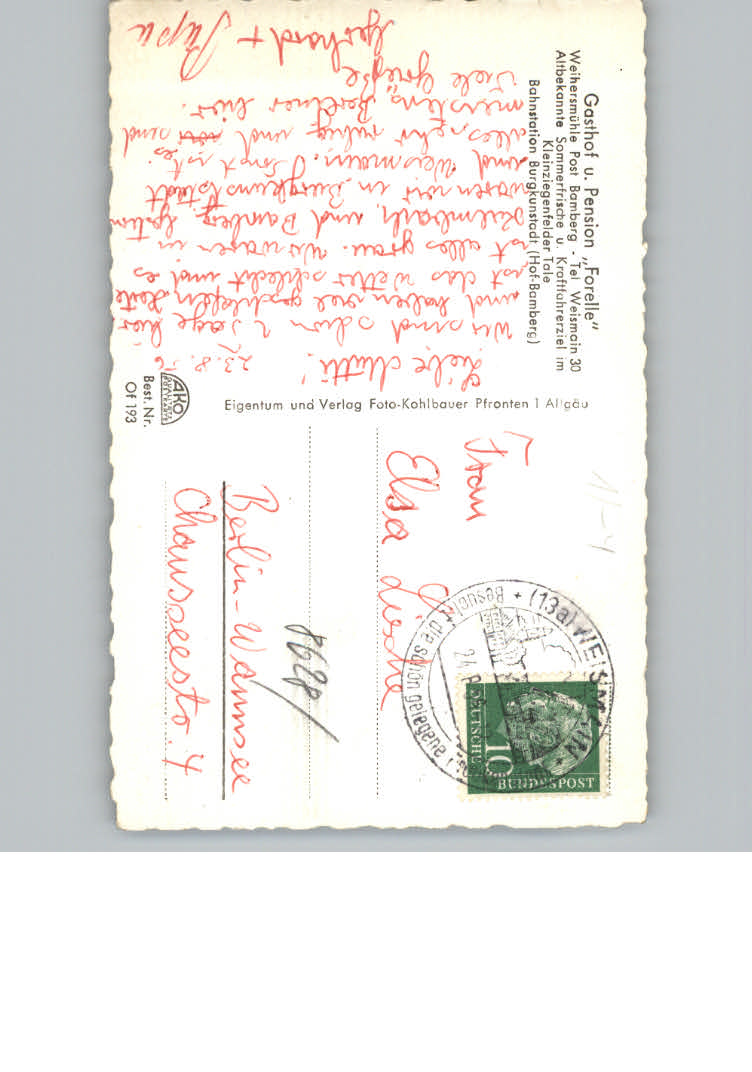 Gasthof u. Pension „Forelle"
Weihersmühle Post Bamberg · Tel Weismain 30
Altbekannte Sommerfrische u. Kraftfahrerziel im
Kleinziegenfelder Tale
Bahnstation Burgkunstadt (Hof-Bamberg)
23.8.56
Liebe Mutti!
Wir sind schon 2 Tage hier
und haben viel geschlafen heute
ist das Wetter schlecht und es
ist alles grau. Wir waren in
Kulmbach, und Bamberg, gestern
waren wir in Burgkunstadt
und Weismain. Sonst ist es
alles sehr ruhig und sind
meistens Berliner hier.
Viele Grüße
Gerhard + Papa
Eigentum und Verlag Foto-Kohlbauer Pfronten 1 Allgäu
AKO
Best. Nr.
Of 193
Frau
Elsa
Berlin-Wannsee
Chausseestr. 4
8628/
(13a) WEISMAIN
Besucht die schön gelegene
24.8.
10
DEUTSCHE
BUNDESPOST